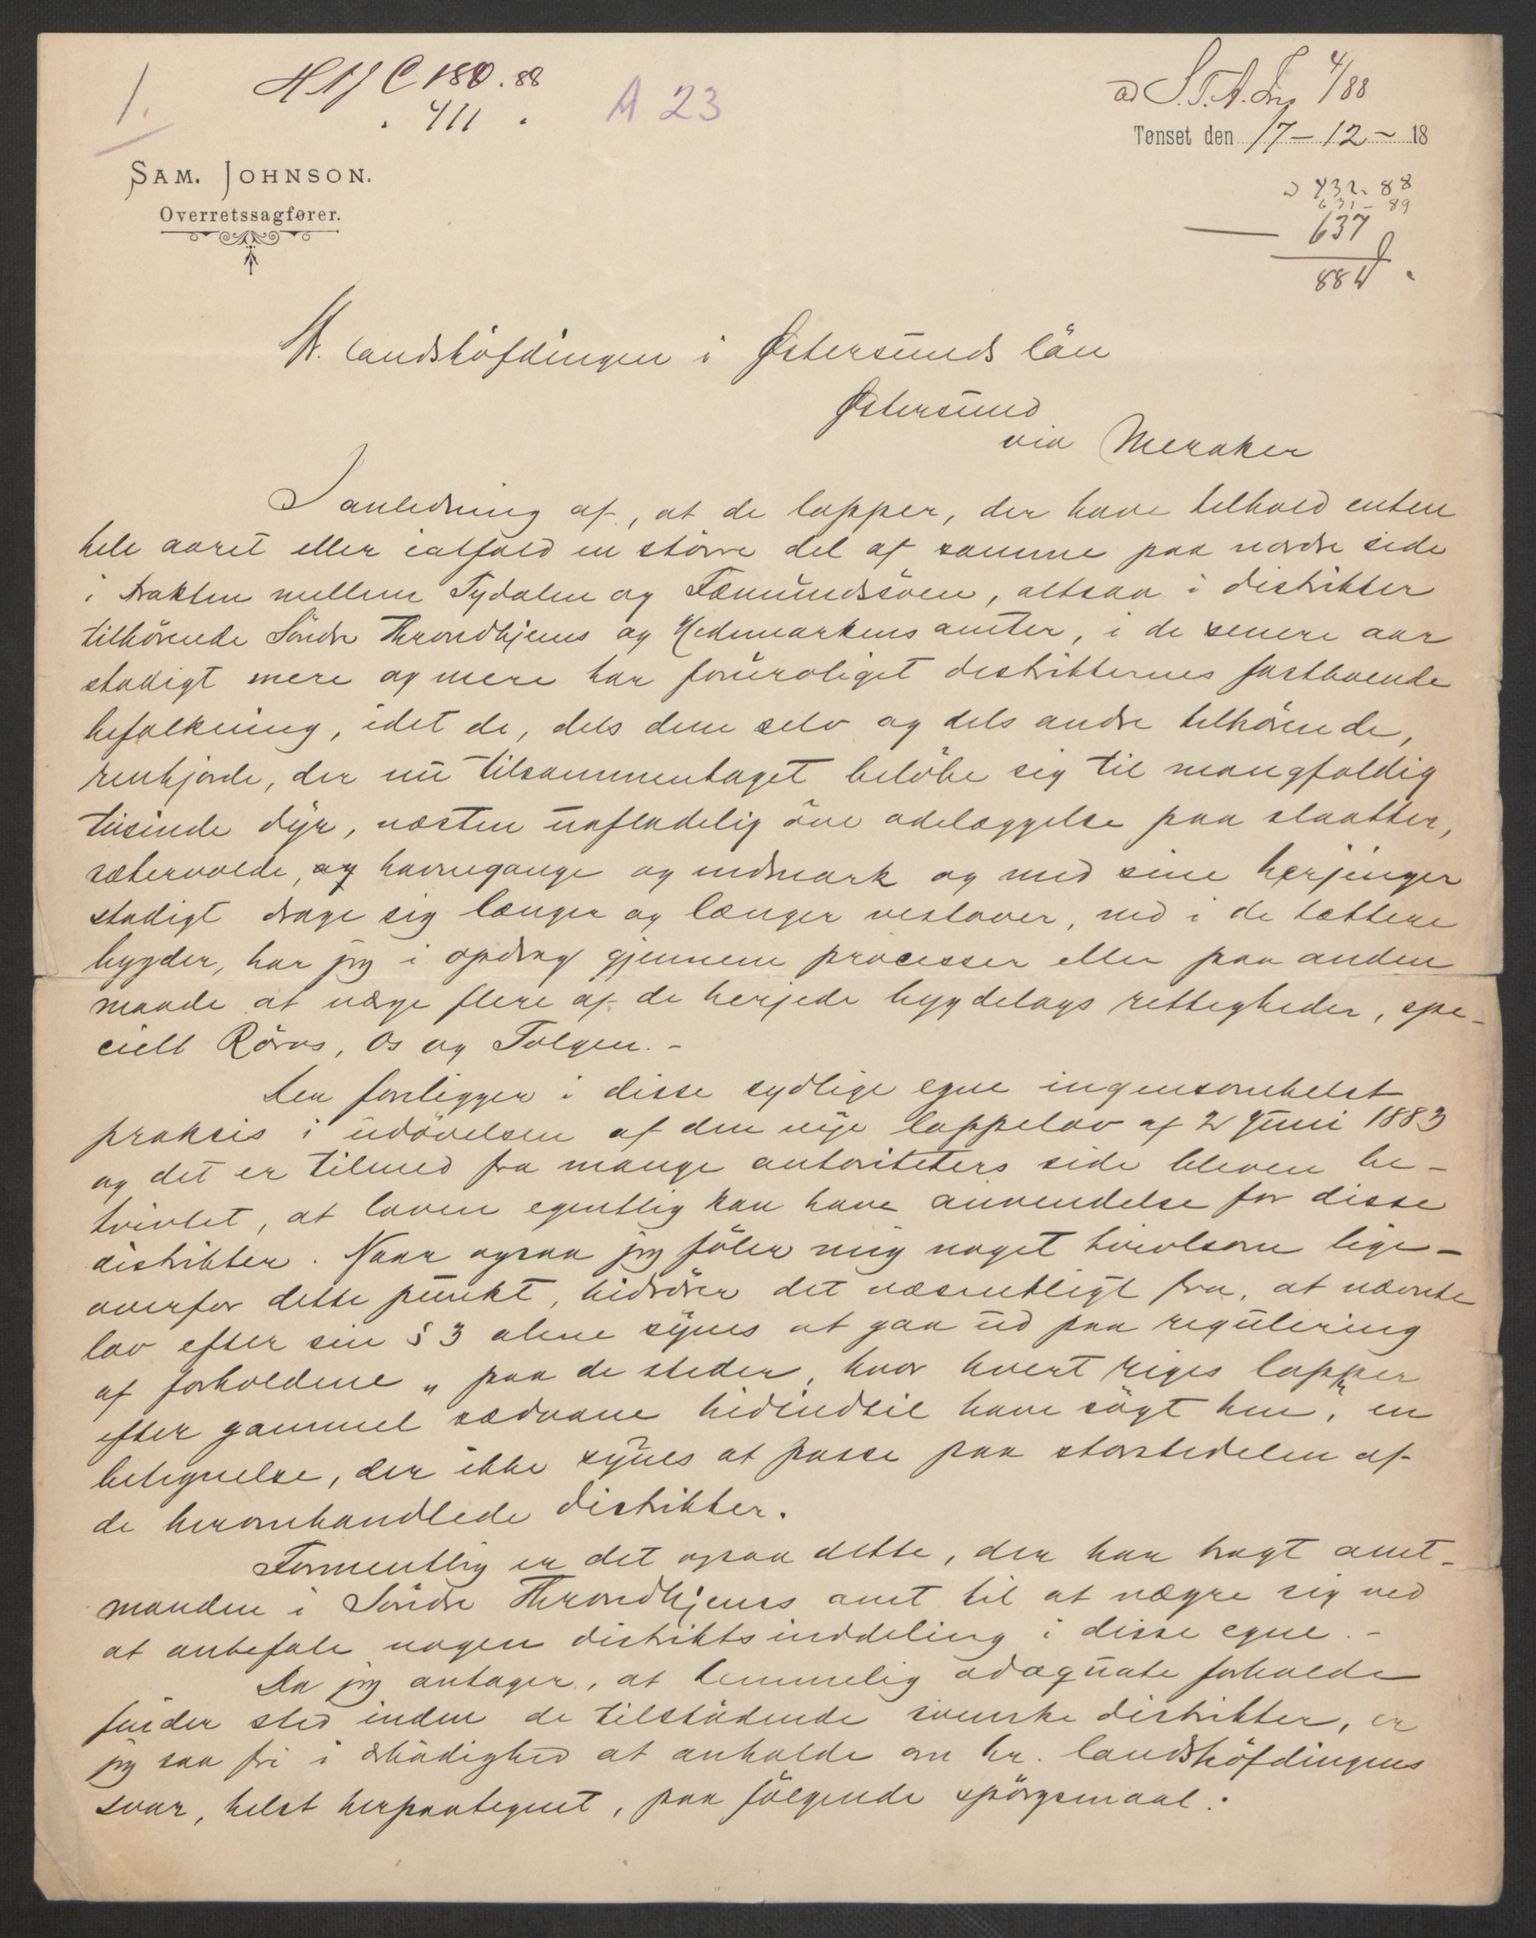 1.
H N J C 180. 88
. 411 .
A 23
ad S.T.A. 4/88
Tønset den 17-12- 18
432. 88
631 - 89
637
884
SAM. JOHNSON.
Overretssagfører.
Hr. landshöfdingen i Østersunds län
Østersund
via Meraker
I anledning af, at de lapper, der have tilhold enten
hele aaret eller ialfald en större del af samme paa norske side
i trakten mellem Tydalen og Fæmundsöen, altsaa i distrikter
tilhörende Söndre Throndhjems og Hedemarkens amter, i de senere aar
stadigt mere og mere har foruroliget distrikternes fastboende
befolkning, idet de, dels dem selv og dels andre tilhörende,
renhjorde, der nu tilsammentaget belöbe sig til mangfoldig
tusinde dyr, næsten uafladelig öve ödelæggelse paa slaatter,
sætervolde, og havnegange og indmark og med sine herjinger
stadigt drage sig længer og længer vestover, ned i de tættere
bygder, har jeg i opdrag gjennem processer eller paa anden
maade at væge flere af de herjede bygdelags rettigheder, spe-
cielt Röros, Os og Tolgen. -
Der foreligger i disse sydlige egne ingensomhelst
praksis i udövelsen af den nye lappelov af 2 Juni 1883
og det er tilmed fra mange autoriteters side bleven be-
tvivlet, at loven egentlig kan have anvendelse for disse
distrikter. Naar ogsaa jeg föler mig noget tvivlsom lige-
overfor dette punkt, hidrörer det væsentligt fra, at nævnte
lov efter sin § 3 alene synes at gaa ud paa regulering
af forholdene „paa de steder, hvor hvert riges lapper
efter gammel sædvane hidindtil have sögt hen", en
betegnelse, der ikke synes at passe paa störstedelen af
de heromhandlede distrikter.
Formentlig er det ogsaa dette, der har bragt amt-
manden i Söndre Throndhjems amt til at vægre sig ved
at anbefale nogen distriktsinddeling i disse egne. -
Da jeg antager, at temmelig adæquate forholde
finder sted inden de tilstödende svenske distrikter, er
jeg saa fri i ærbödighed at anholde om hr. landshöfdingens
svar, helst herpaategnet, paa fölgende spörgsmaal: